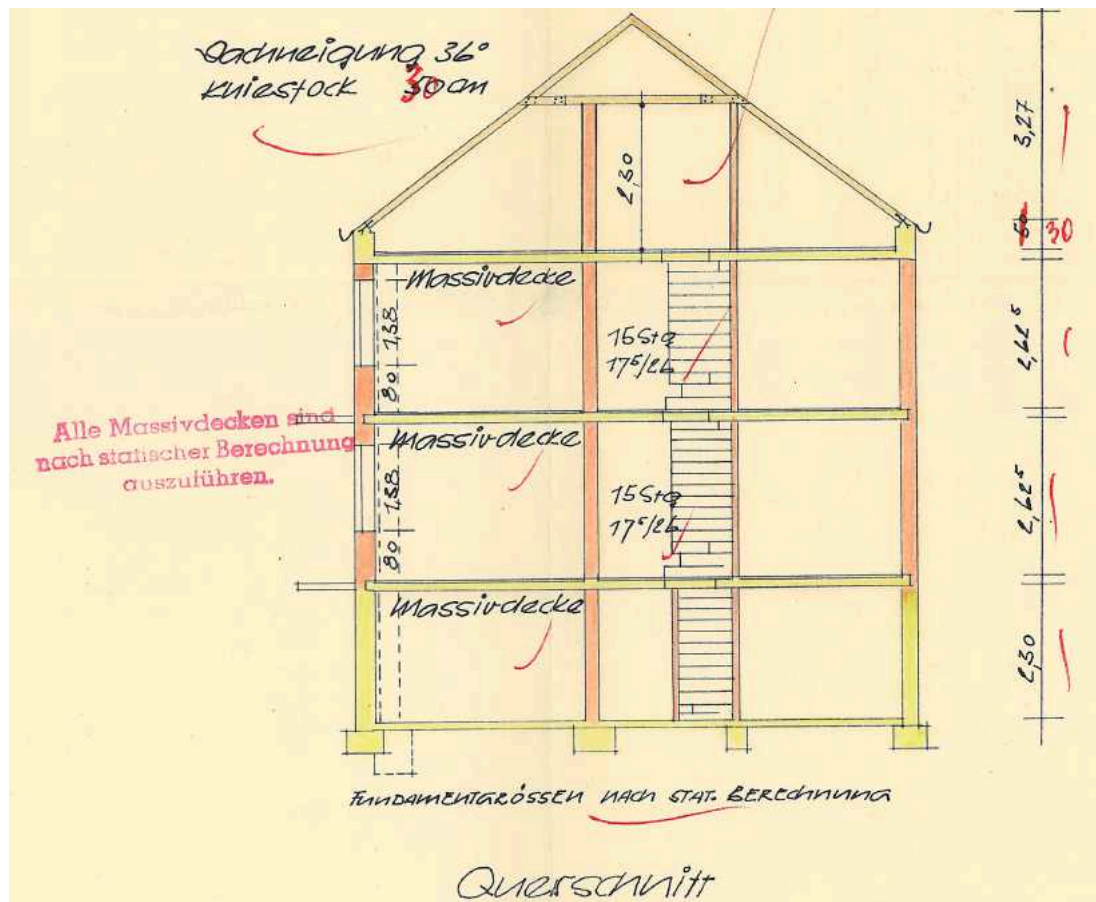 Dachneigung 36°
Kniestock 30 cm
3,27
2,30
50 30
Massivdecke
1,38
80
15 Stg
17⁵/26
2,62⁵
Alle Massivdecken sind
nach statischer Berechnung
auszuführen.
Massivdecke
1,38
80
15 Stg
17⁵/26
2,62⁵
Massivdecke
2,30
FUNDAMENTGRÖSSEN NACH STAT. BERECHNUNG
Querschnitt